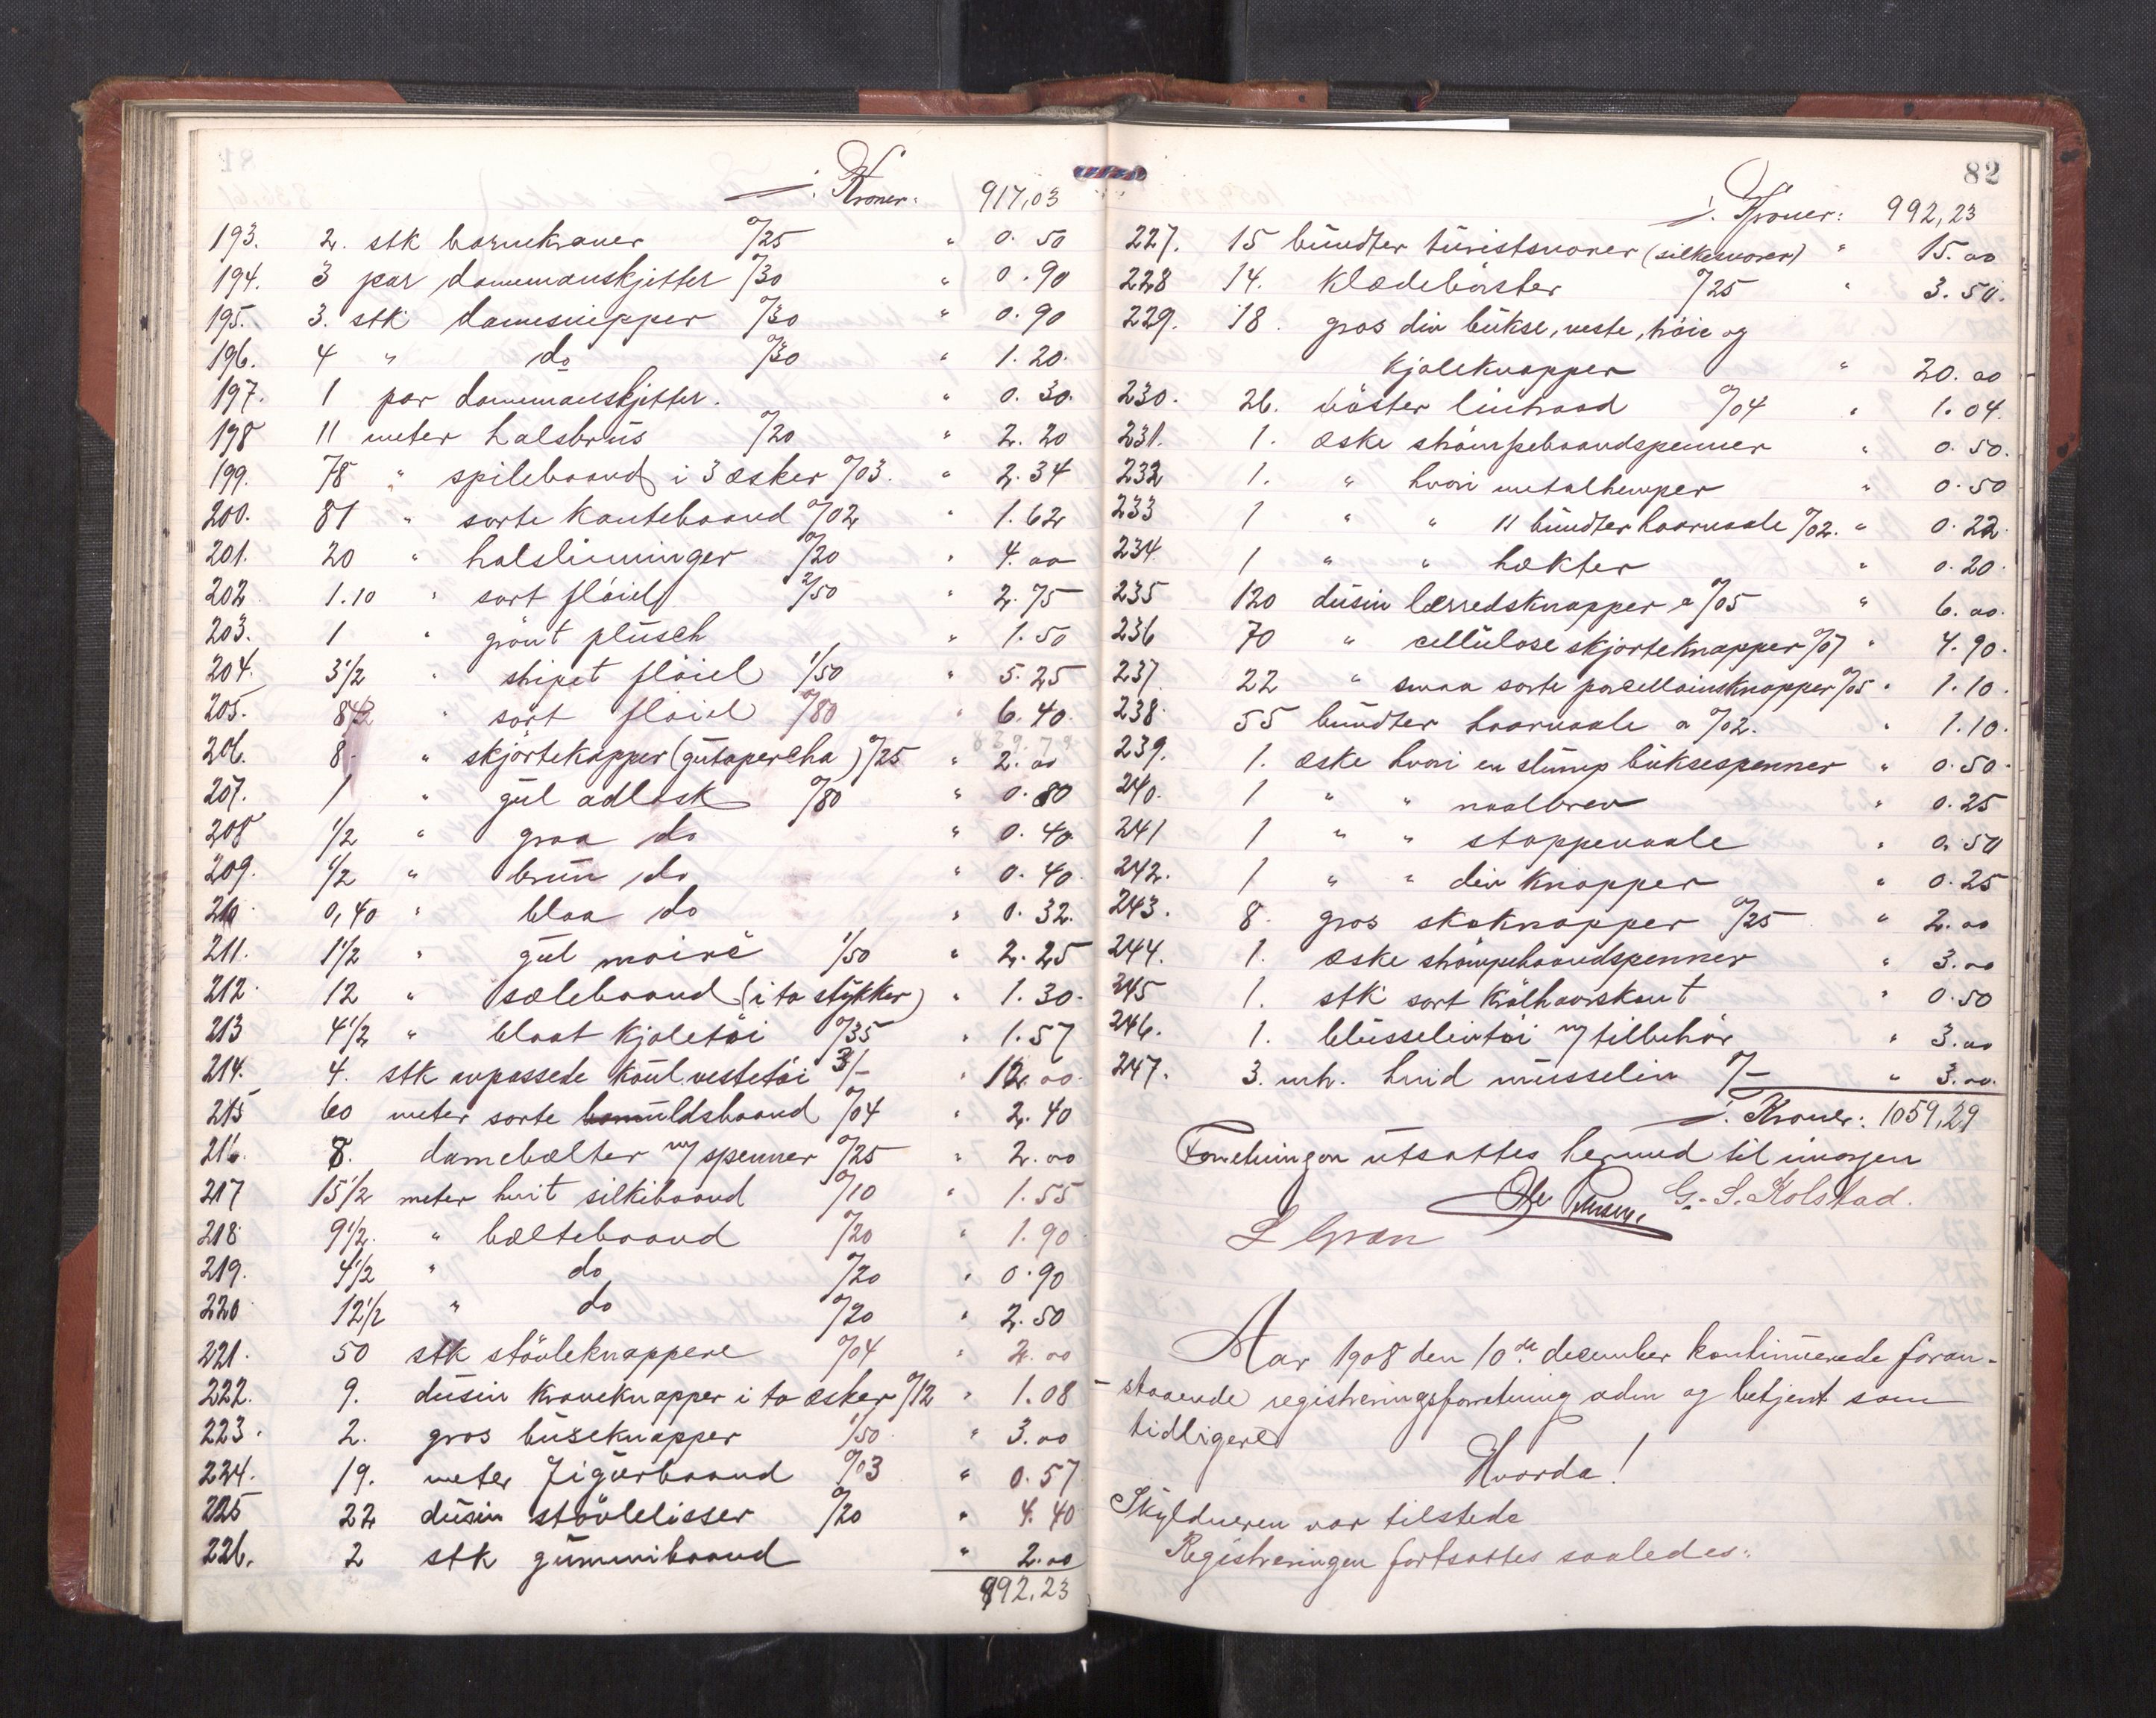 ./. Kroner: 917,03
193. 2. stk barnekraver 0/25 " 0.50
194. 3 par damemanskjetter 0/30 " 0.90
195. 3. stk damesnipper 0/30 " 0.90
196. 4 " do 0/30 " 1.20.
197. 1 par damemanskjetter. " 0.30.
198 11 meter halsbrus 0/20 " 2.20
199. 78 " spilebaand i 3 æsker 0/03. " 2.34
200. 81 " sorte kantebaand 0/02 " 1.62
201. 20 " halslinninger 0/20 " 4.00
202 1.10 " sort flöiel 2/50 " 2.75
203. 1 " grönt plusch " 1.50
204. 3 1/2 " stripet flöiel 1/50 " 5.25
205. 8 " sort flöiel 0/80 " 6.40.
206. 8 " skjörtekapper (gutapercha) 0/25 " 2.00
207. 1 " gul adlask 0/80 " 0.80
208 1/2 " graa do " 0.40
209. 1/2 " brun do " 0.40.
210 0,40 " blaa do " 0.32.
211. 1 1/2 " gul moiré 1/50 " 2.25
212. 12 " sælebaand (i to stykker) " 1.30.
213 4 1/2 " blaat kjoletöi 0/35 " 1.57
214. 4. stk avpassede koul. vestetöi 3/- " 12.00.
215 60 meter sorte bomuldsbaand 0/04 " 2.40
216. 8. damebælter m/ spenner 0/25 " 2.00
217 15 1/2 meter hvit silkebaand 0/10 " 1.55
218 9 1/2. " bæltebaand 0/20 " 1.90
219. 4 1/2 " do 0/20 " 0.90
220 12 1/2 " do 0/20 " 2.50
221. 50 stk stövleknappere 0/04 " 2.00
222. 9. dusin kraveknapper i to æsker 0/12 " 1.08
223. 2. gros buseknapper 1/50 " 3.00
224. 19. meter figurbaand 0/03 " 0.57
225 22 dusin stövlelisser 0/20 " 4.40
226. 2 stk gummibaand " 2.00
992,23
82
./. Kroner: 992,23
227. 15 bundter turistsnorer (silkesnorer) " 15.00
228 14. Klædebörster 0/25 " 3.50.
229. 18. gros div bukse, veste, tröie og
kjoleknapper " 20.00
230. 26. böster lintraad 0/04 " 1.04.
231. 1. æske strömpebaandspenner " 0.50.
232 1. " hvori metalhemper " 0.50
233 1 " " 11 bundter haarnaale 0/02. " 0.22
234. 1 " " hækter " 0.20.
235 120 dusin lærredsknapper a 0/05 " 6.00.
236 70 " cellulose skjorteknapper 0/07 " 4.90.
237 22 " smaa sorte porcellainsknapper 0/05 " 1.10.
238. 55 bundter haarnaale a 0/02. " 1.10.
239. 1. æske hvori en slump buksespenner " 0.50.
240. 1 " " naalbrev " 0.25
241 1 " " stoppenaale " 0.50
242. 1 " " div knapper " 0.25
243. 8. gros skoknapper 0/25 " 2.00
244. 1. æske strömpebaandspenner " 3.00
245 1. stk sort krölhaarskant " 0.50
246. 1. bluselintöi m/ tilbehör " 3.00
247. 3. mtr. hvid musselin 1/- " 3.00.
./. Kroner: 1059,29
Forretningen utsattes hermed til imorgen
G. S. Kolstad.
L Gran
Aar 1908 den 10de december kontinuerede foran-
- staaende registreringsforretning adm og betjent som
tidligere
Hvorda!
Skyldneren var tilstede
Registreringen fortsattes saaledes: